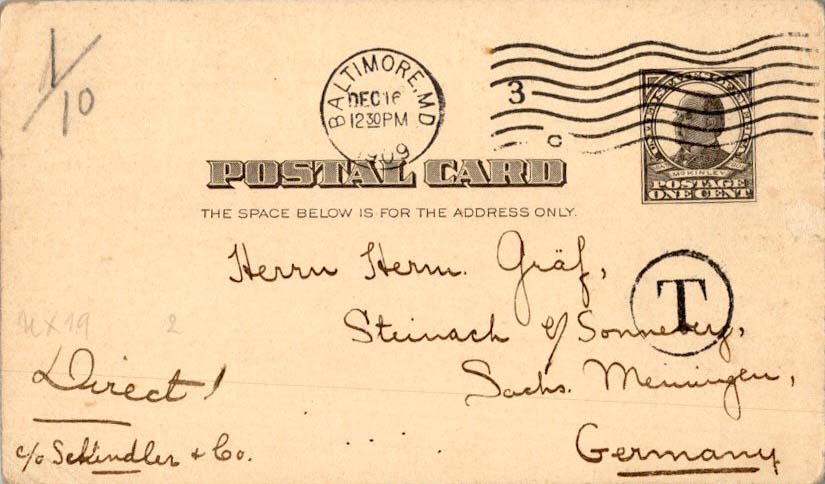 1/10
BALTIMORE, MD
DEC 16
12 30 PM
1909
3
C
McKINLEY
POSTAGE
ONE CENT
POSTAL CARD
THE SPACE BELOW IS FOR THE ADDRESS ONLY.
Herrn Herm. Gräf,
T
Steinach e/ Sonneberg,
Sachs. Meiningen,
Germany
UX19
2
Direct!
c/o Schindler + Co.